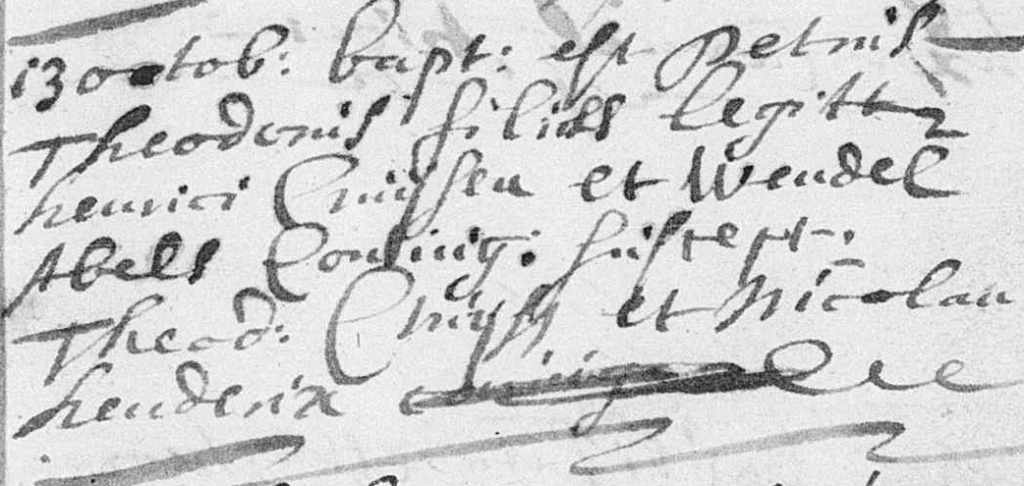 13 octob: bapt: est Petrus
Theodorus filius legitt
henrici Cruÿsen et Wendel
Abels Coniug: suscept:
Theod: Cruÿss et Nicolaa
henderix